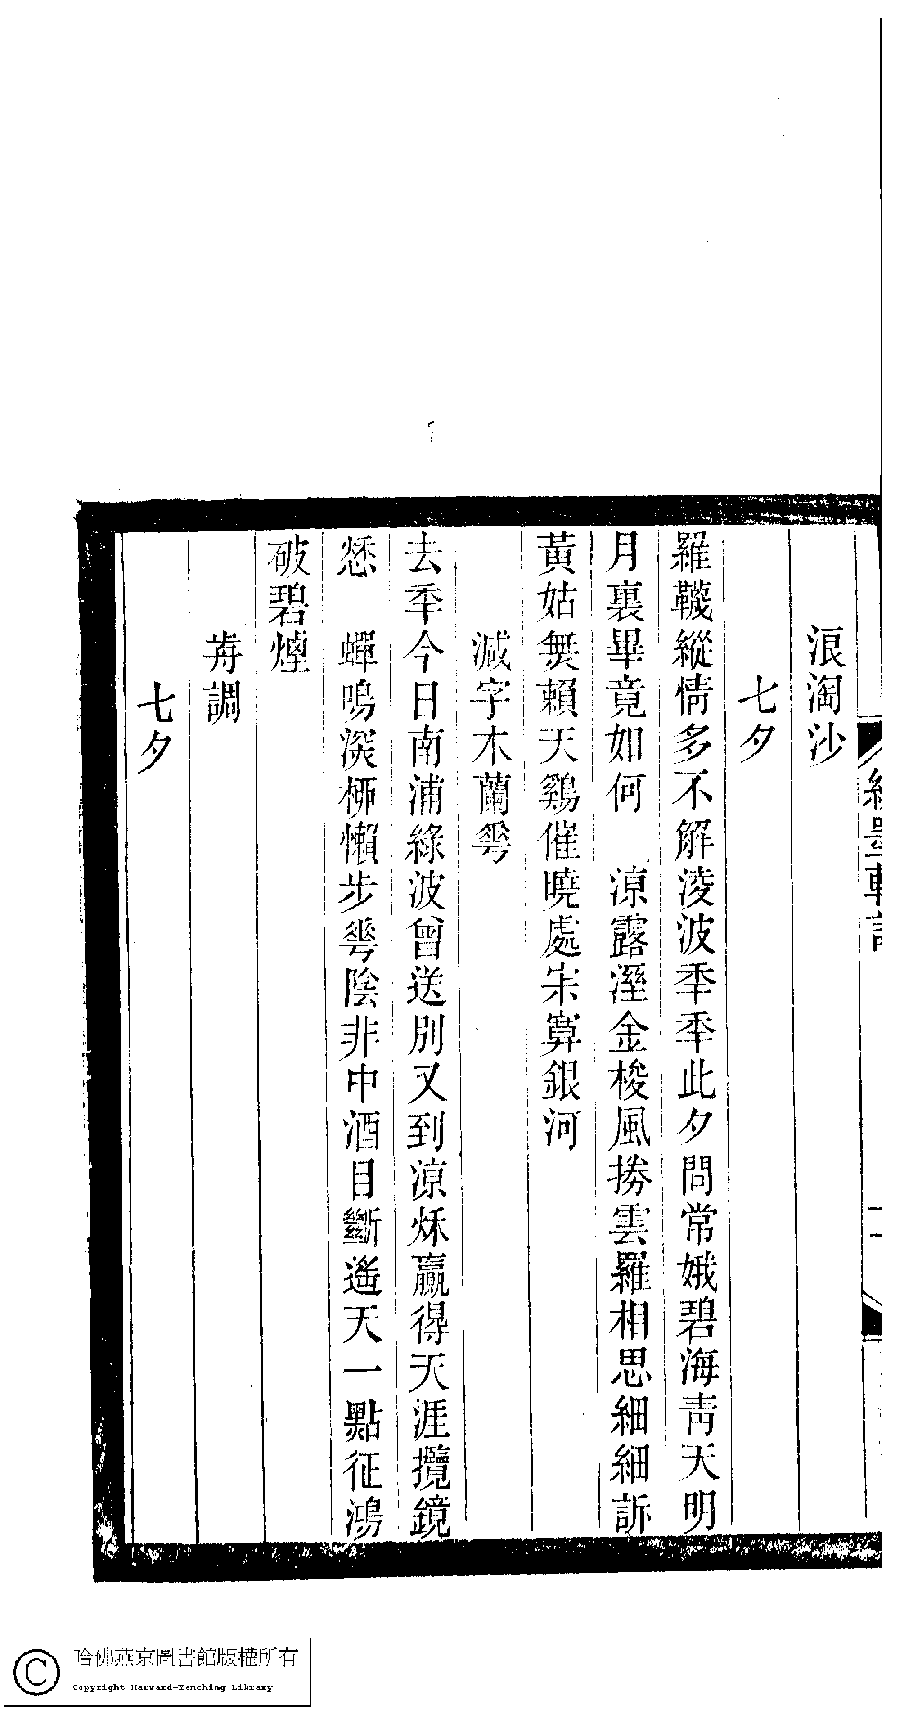 浪淘沙
七夕
羅韈縱情多不解淩波秊秊此夕問常娥碧海靑天明
月裏畢竟如何　涼露溼金梭風拶雲羅相思細細訴
黃姑無賴天鷄催曉處未算銀河
減字木蘭蕚
去秊今日南浦綠波曾送別又到涼秌贏得天涯攬鏡
愁　蟬鳴深桺懶步蕚陰非中酒目斷遙天一點征鴻
破碧煙
歬調
七夕
哈佛燕京圖書館版權所有
Copyright Harvard-Yenching Library